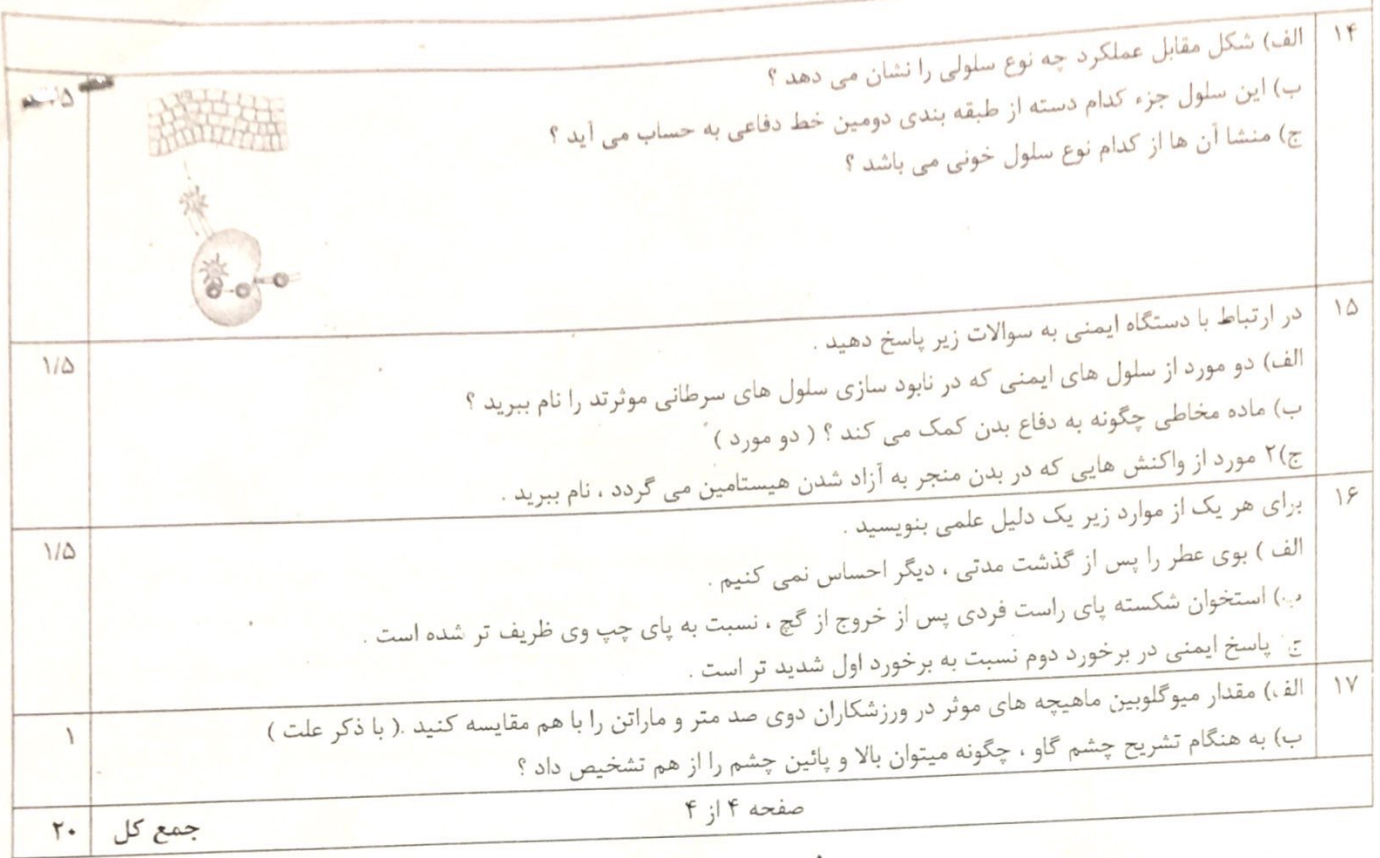 ۱۴
الف) شکل مقابل عملکرد چه نوع سلولی را نشان می دهد ؟
ب) این سلول جزء کدام دسته از طبقه بندی دومین خط دفاعی به حساب می آید ؟
ج) منشا آن ها از کدام نوع سلول خونی می باشد ؟
۱۵
در ارتباط با دستگاه ایمنی به سوالات زیر پاسخ دهید .
الف) دو مورد از سلول های ایمنی که در نابود سازی سلول های سرطانی موثرتد را نام ببرید ؟
ب) ماده مخاطی چگونه به دفاع بدن کمک می کند ؟ ( دو مورد )
ج)۲ مورد از واکنش هایی که در بدن منجر به آزاد شدن هیستامین می گردد ، نام ببرید .
۱/۵
۱۶
برای هر یک از موارد زیر یک دلیل علمی بنویسید .
الف ) بوی عطر را پس از گذشت مدتی ، دیگر احساس نمی کنیم .
ب) استخوان شکسته پای راست فردی پس از خروج از گچ ، نسبت به پای چپ وی ظریف تر شده است .
ج پاسخ ایمنی در برخورد دوم نسبت به برخورد اول شدید تر است .
۱/۵
۱۷
الف) مقدار میوگلوبین ماهیچه های موثر در ورزشکاران دوی صد متر و ماراتن را با هم مقایسه کنید .( با ذکر علت )
ب) به هنگام تشریح چشم گاو ، چگونه میتوان بالا و پائین چشم را از هم تشخیص داد ؟
۱
صفحه ۴ از ۴
جمع کل ۲۰